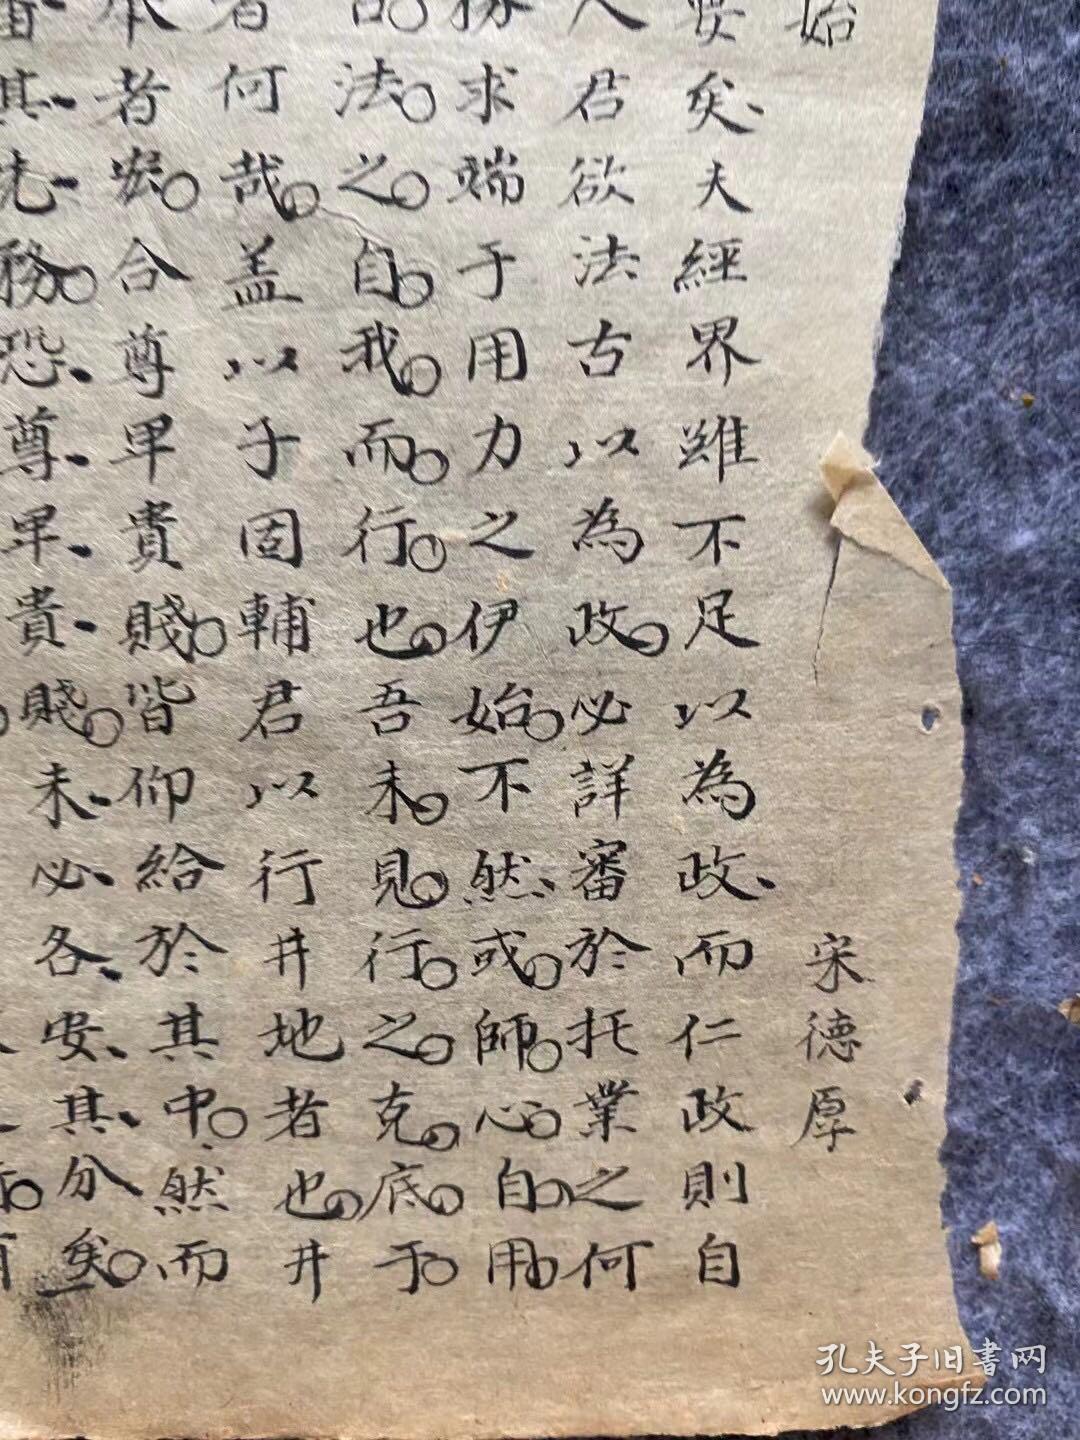 始 宋德厚
要矣夫經界雖不足以為政而仁政則自
人君欲法古以為政必詳審於托業之何
務求端于用力之伊始不然或師心自用
法之自我而行也吾未見行之克底于
者何哉盖以子固輔君以行井地者也井
本者宏合尊卑貴賤皆仰給於其中然而
其先務恐尊卑貴賤未必各安其分矣
孔夫子旧書网
www.kongfz.com